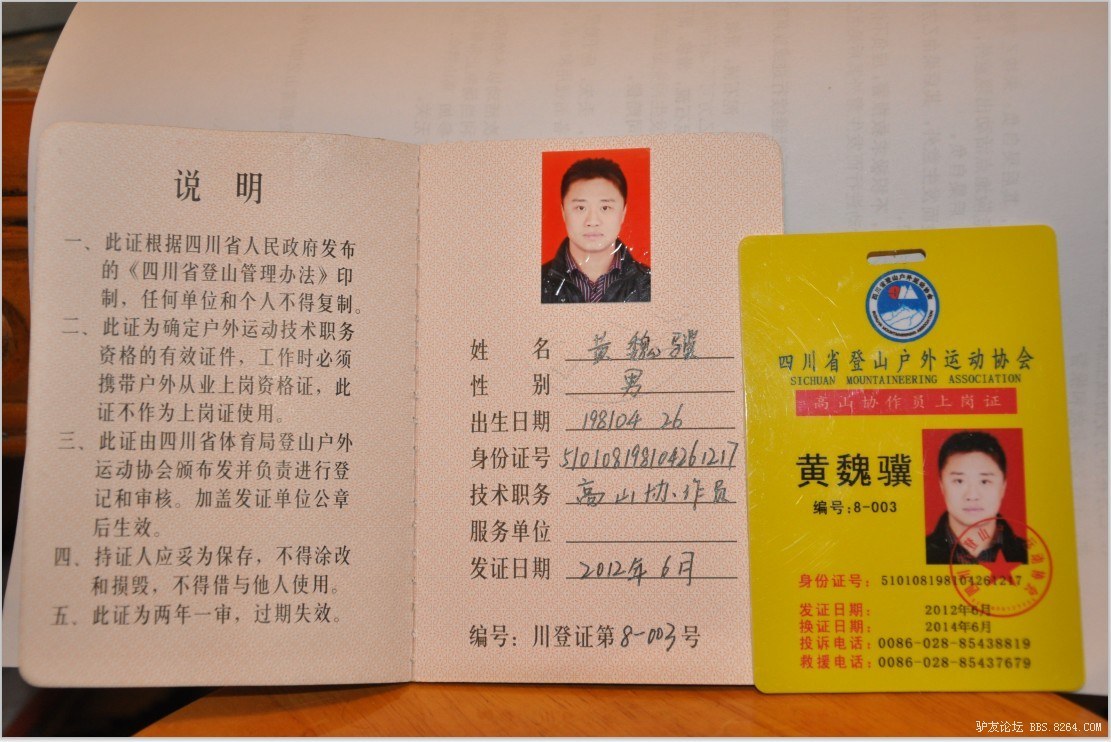 说 明
一、此证根据四川省人民政府发布
的《四川省登山管理办法》印
制，任何单位和个人不得复制。
二、此证为确定户外运动技术职务
资格的有效证件，工作时必须
携带户外从业上岗资格证，此
证不作为上岗证使用。
三、此证由四川省体育局登山户外
运动协会颁布发并负责进行登
记和审核。加盖发证单位公章
后生效。
四、持证人应妥为保存，不得涂改
和损毁，不得借与他人使用。
五、此证为两年一审，过期失效。
姓 名 黄魏骥
性 别 男
出生日期 198104 26
身份证号 510108198104261217
技术职务 高山协作员
服务单位
发证日期 2012年6月
编号：川登证第8-003号
四川省登山户外运动协会
SICHUAN MOUNTAINEERING ASSOCIATION
高山协作员上岗证
黄魏骥
编号:8-003
身份证号：510108198104261217
发证日期： 2012年6月
换证日期： 2014年6月
投诉电话：0086-028-85438819
救援电话：0086-028-85437679
驴友论坛 BBS.8264.COM